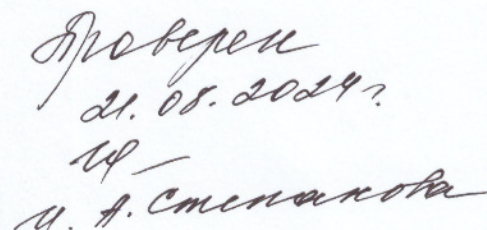 Проверен
21.08.2024 г.
И. А. Степанова